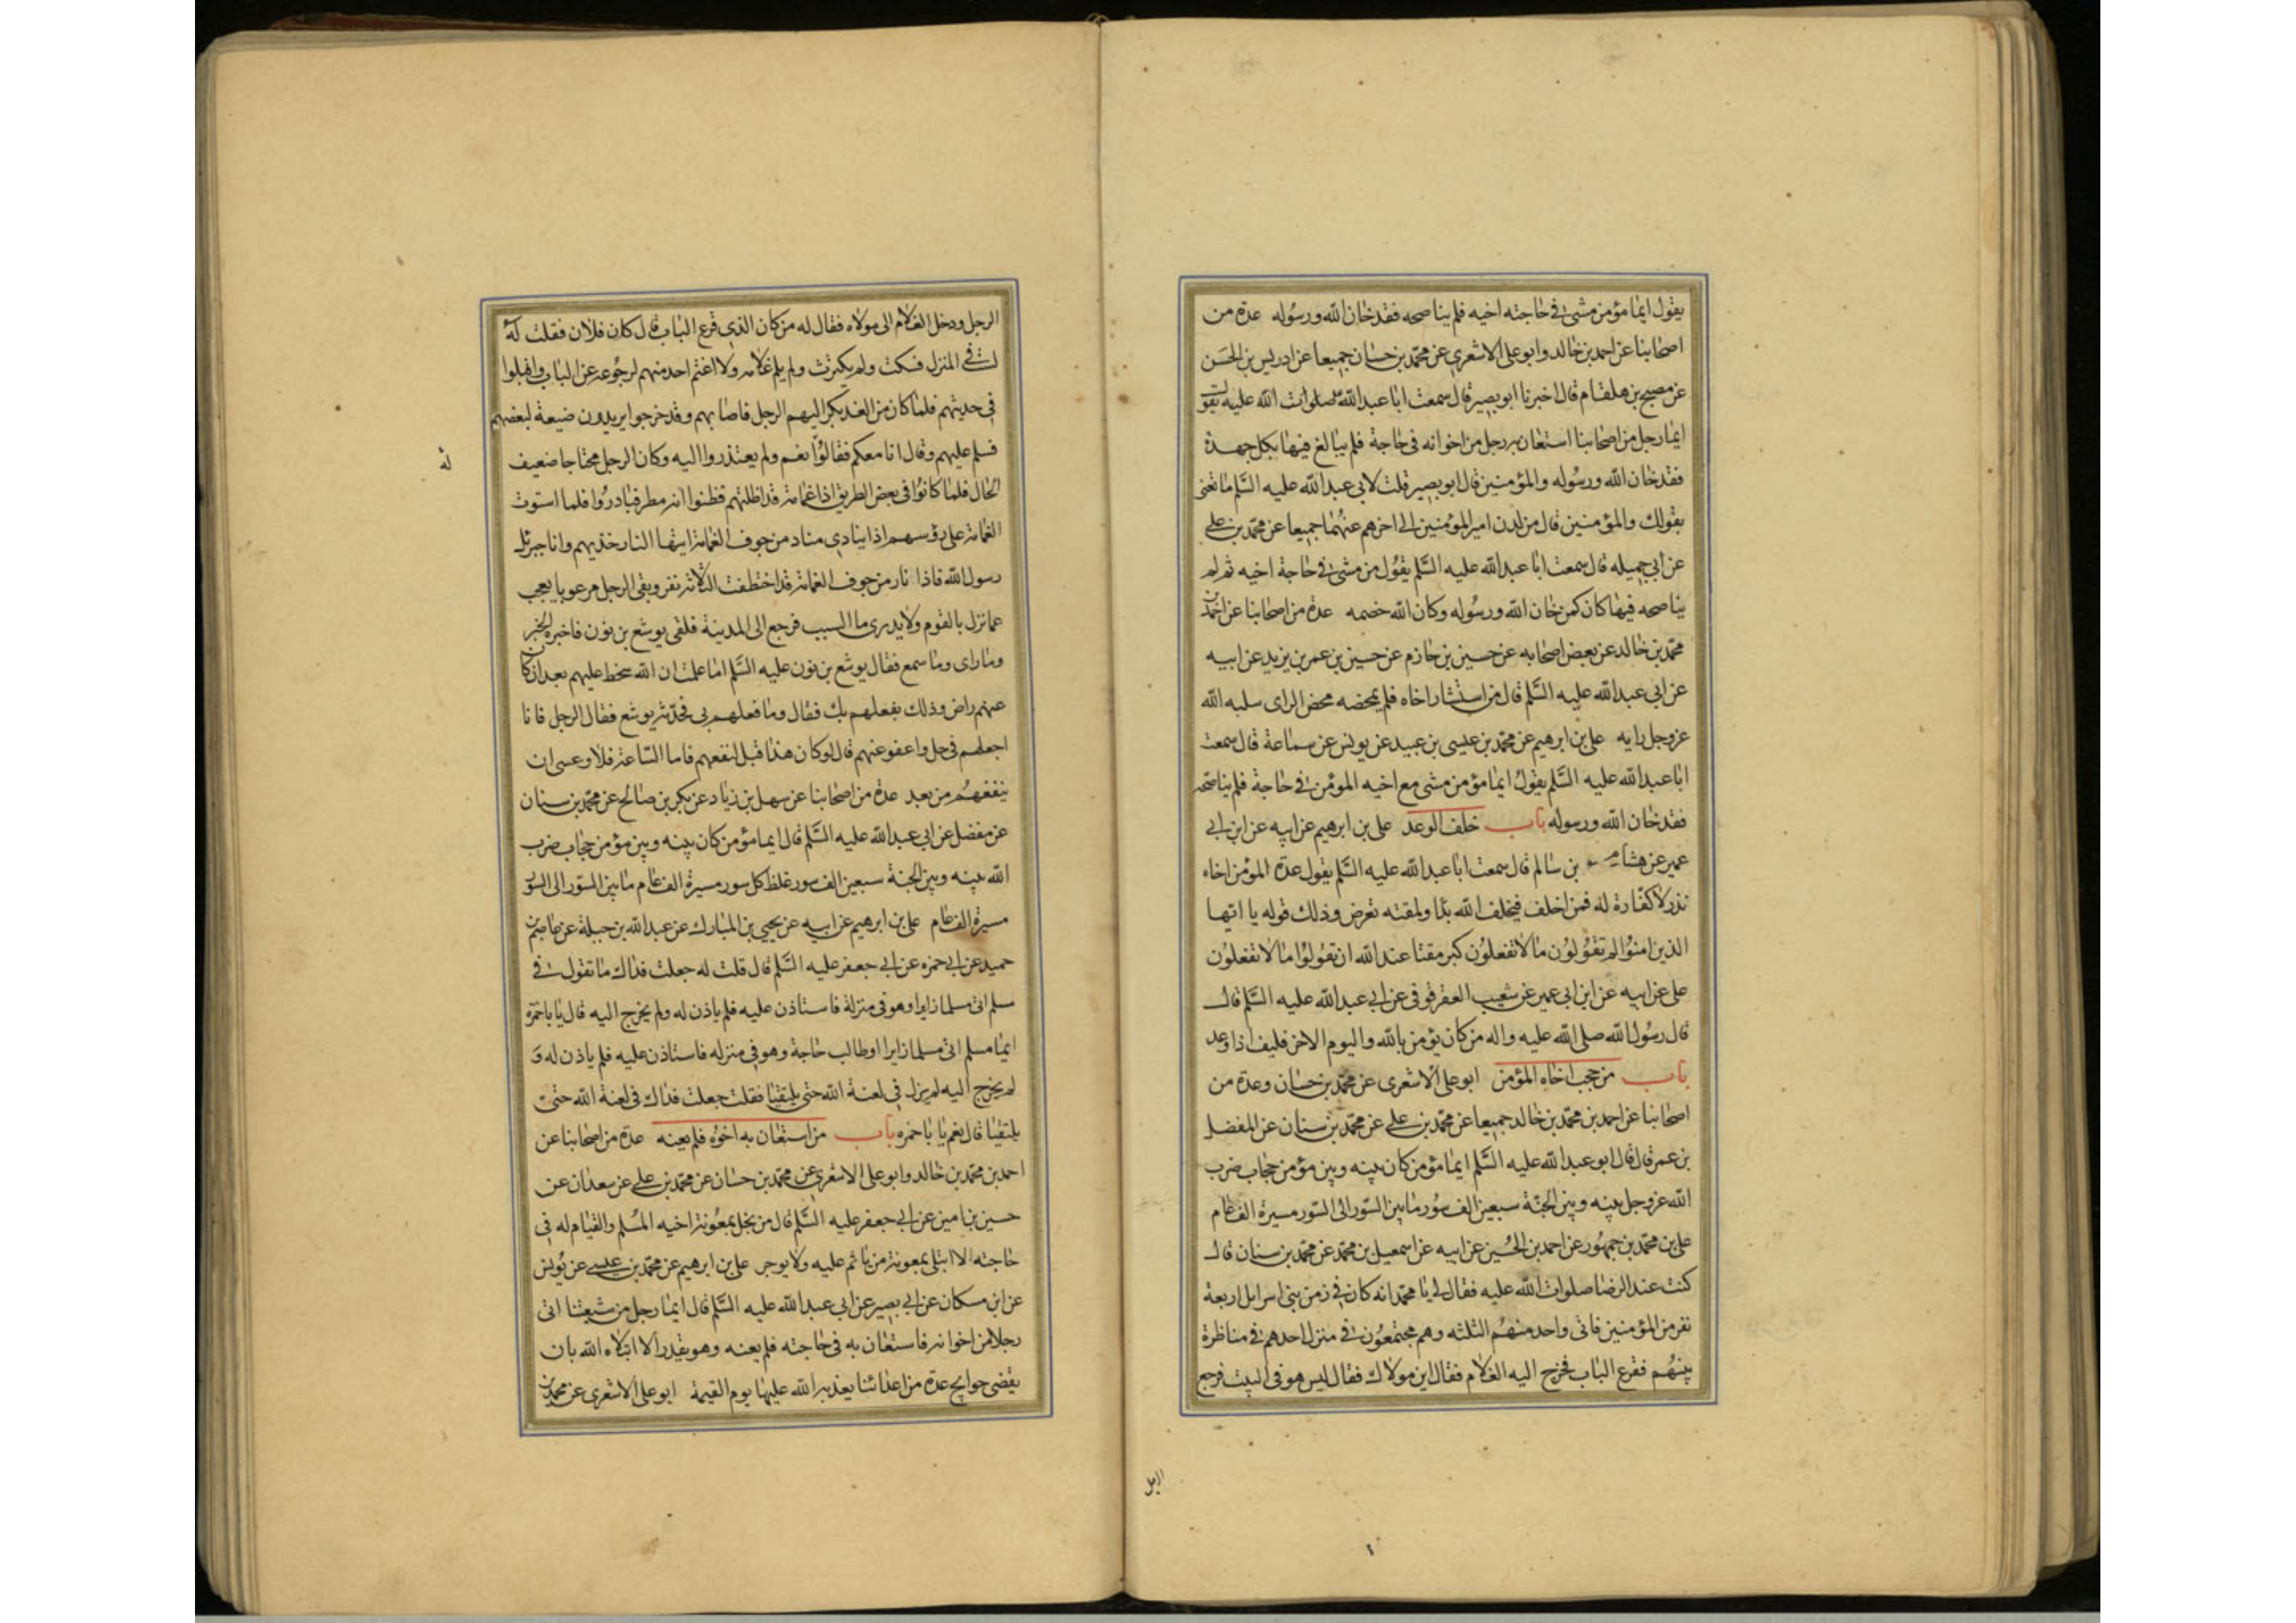 يقول ايما مؤمن مشى فى حاجته اخيه فلم يناصحه فقد خان الله ورسوله عدة من
اصحابنا عن احمد بن خالد وابو على الاشعرى عن محمد بن حسان جميعا عن ادريس بن الحسن
عن مصبح بن هلقام قال اخبرنا ابو بصير قال سمعت ابا عبد الله صلوات الله عليه يقول
ايما رجل من اصحابنا استعان به رجل من اخوانه فى حاجة فلم يبالغ فيها بكل جهدة
فقد خان الله ورسوله والمؤمنين قال ابو بصير قلت لابى عبد الله عليه السلم ما تعنى
بقولك والمؤمنين قال من لدن امير المؤمنين الى اخرهم عنهما جميعا عن محمد بن على
عن ابى جميله قال سمعت ابا عبد الله عليه السلم يقول من مشى فى حاجة اخيه ثم لم
يناصحه فيها كان كمن خان الله ورسوله وكان الله خصمه عدة من اصحابنا عن احمد بن
محمد بن خالد عن بعض اصحابه عن حسين بن حازم عن حسين بن عمر بن يزيد عن ابيه
عن ابى عبد الله عليه السلم قال من استشار اخاه فلم يمحضه محض الراى سلبه الله
عز وجل رايه على بن ابرهيم عن محمد بن عيسى بن عبيد عن يونس عن سماعة قال سمعت
ابا عبد الله عليه السلم يقول ايما مؤمن مشى مع اخيه المومن فى حاجة فلم يناصحه
فقد خان الله ورسوله باب خلف الوعد على بن ابرهيم عن ابيه عن ابن ابى
عمير عن هشام بن سالم قال سمعت ابا عبد الله عليه السلم يقول عدة المؤمن اخاه
نذر لا كفارة له فمن اخلف فيخلف الله بدا ولمقته تعرض وذلك قوله يا ايها
الذين امنوا لم تقولون ما لا تفعلون كبر مقتا عند الله ان تقولوا ما لا تفعلون
على عن ابيه عن ابن ابى عمير عن شعيب العقرقوفى عن ابى عبد الله عليه السلم قال
قال رسول الله صلى الله عليه واله من كان يؤمن بالله واليوم الاخر فليف اذا وعد
باب من حجب اخاه المؤمن ابو على الاشعرى عن محمد بن حسان وعدة من
اصحابنا عن احمد بن محمد بن خالد جميعا عن محمد بن على عن محمد بن سنان عن المفضل
بن عمر قال قال ابو عبد الله عليه السلم ايما مؤمن كان بينه وبين مؤمن حجاب ضرب
الله عز وجل بينه وبين الجنة سبعين الف سور ما بين السور الى السور مسيرة الف عام
على بن محمد بن جمهور عن احمد بن الحسين عن ابيه عن اسمعيل بن محمد عن محمد بن سنان قال
كنت عند الرضا صلوات الله عليه فقال لى يا محمد انه كان فى زمن بنى اسرايل اربعة
نفر من المؤمنين فاتى واحد منهم الثلثه وهم مجتمعون فى منزل احدهم فى مناظرة
بينهم فقرع الباب فخرج اليه الغلام فقال اين مولاك فقال ليس هو فى البيت فرجع
الرجل
الرجل ودخل الغلام الى مولاه فقال له من كان الذى قرع الباب قال كان فلان فقلت له
لست فى المنزل فسكت ولم يكترث ولم يلم غلامه ولا اغتم احد منهم لرجوعه عن الباب واقبلوا
فى حديثهم فلما كان من الغد بكر اليهم الرجل فاصابهم وقد خرجوا يريدون ضيعة لبعضهم
فسلم عليهم وقال انا معكم فقالوا نعم ولم يعتذروا اليه وكان الرجل محتاجا ضعيف
له
الحال فلما كانوا فى بعض الطريق اذا غمامة قد اظلتهم فظنوا انه مطر فبادروا فلما استوت
الغمامة على رؤسهم اذا ينادى مناد من جوف الغمامة ايتها النار خذيهم وانا جبرئيل
رسول الله فاذا نار من جوف الغمامة قد اختطفت الثلاثة نفر وبقى الرجل مرعوبا يعجب
عما نزل بالقوم ولا يدرى ما السبب فرجع الى المدينة فلقى يوشع بن نون فاخبره الخبر
وما راى وما سمع فقال يوشع بن نون عليه السلم اما علمت ان الله سخط عليهم بعد ان كان
عنهم راض وذلك بفعلهم بك فقال وما فعلهم بى فحدثه يوشع فقال الرجل فانا
اجعلهم فى حل واعفو عنهم قال لو كان هذا قبل لنفعهم فاما الساعة فلا وعسى ان
ينفعهم من بعد عدة من اصحابنا عن سهل بن زياد عن بكر بن صالح عن محمد بن سنان
عن مفضل عن ابى عبد الله عليه السلم قال ايما مؤمن كان بينه وبين مؤمن حجاب ضرب
الله بينه وبين الجنة سبعين الف سور غلظ كل سور مسيرة الف عام ما بين السور الى السور
مسيرة الف عام على بن ابرهيم عن ابيه عن يحيى بن المبارك عن عبد الله بن جبلة عن عاصم بن
حميد عن ابى حمزه عن ابى جعفر عليه السلم قال قلت له جعلت فداك ما تقول فى
مسلم اتى مسلما زايرا وهو فى منزلة فاستاذن عليه فلم ياذن له ولم يخرج اليه قال يا باحمزه
ايما مسلم اتى مسلما زايرا او طالب حاجة وهو فى منزله فاستاذن عليه فلم ياذن له و
لم يخرج اليه لم يزل فى لعنة الله حتى يلتقيا فقلت جعلت فداك فى لعنة الله حتى
يلتقيا قال نعم يا باحمزه باب من استعان به اخوه فلم يعنه عدة من اصحابنا عن
احمد بن محمد بن خالد وابو على الاشعرى عن محمد بن حسان عن محمد بن على عن سعدان عن
حسين بن امين عن ابى جعفر عليه السلم قال من بخل بمعونة اخيه المسلم والقيام له فى
حاجته الا ابتلى بمعونة من ياثم عليه ولا يوجر على بن ابرهيم عن محمد بن عيسى عن يونس
عن ابن مسكان عن ابى بصير عن ابى عبد الله عليه السلم قال ايما رجل من شيعتنا اتى
رجلا من اخوانه فاستعان به فى حاجته فلم يعنه وهو يقدر الا ابتلاه الله بان
يقضى حوايج عدة من اعدائنا يعذبه الله عليها يوم القيمة ابو على الاشعرى عن محمد بن